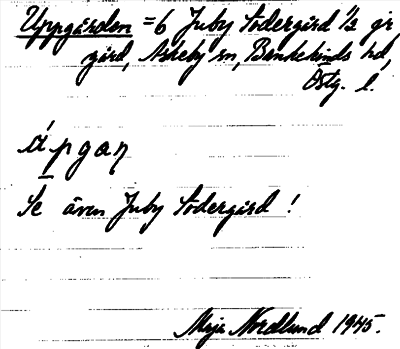 Uppgården = 6 Juby Södergård 1/2 gr
gård, Askeby sn, Bankekinds hd,
Östg. l.
úpgaɳ
Se även Juby Södergård !
Maja Nordlund 1945.